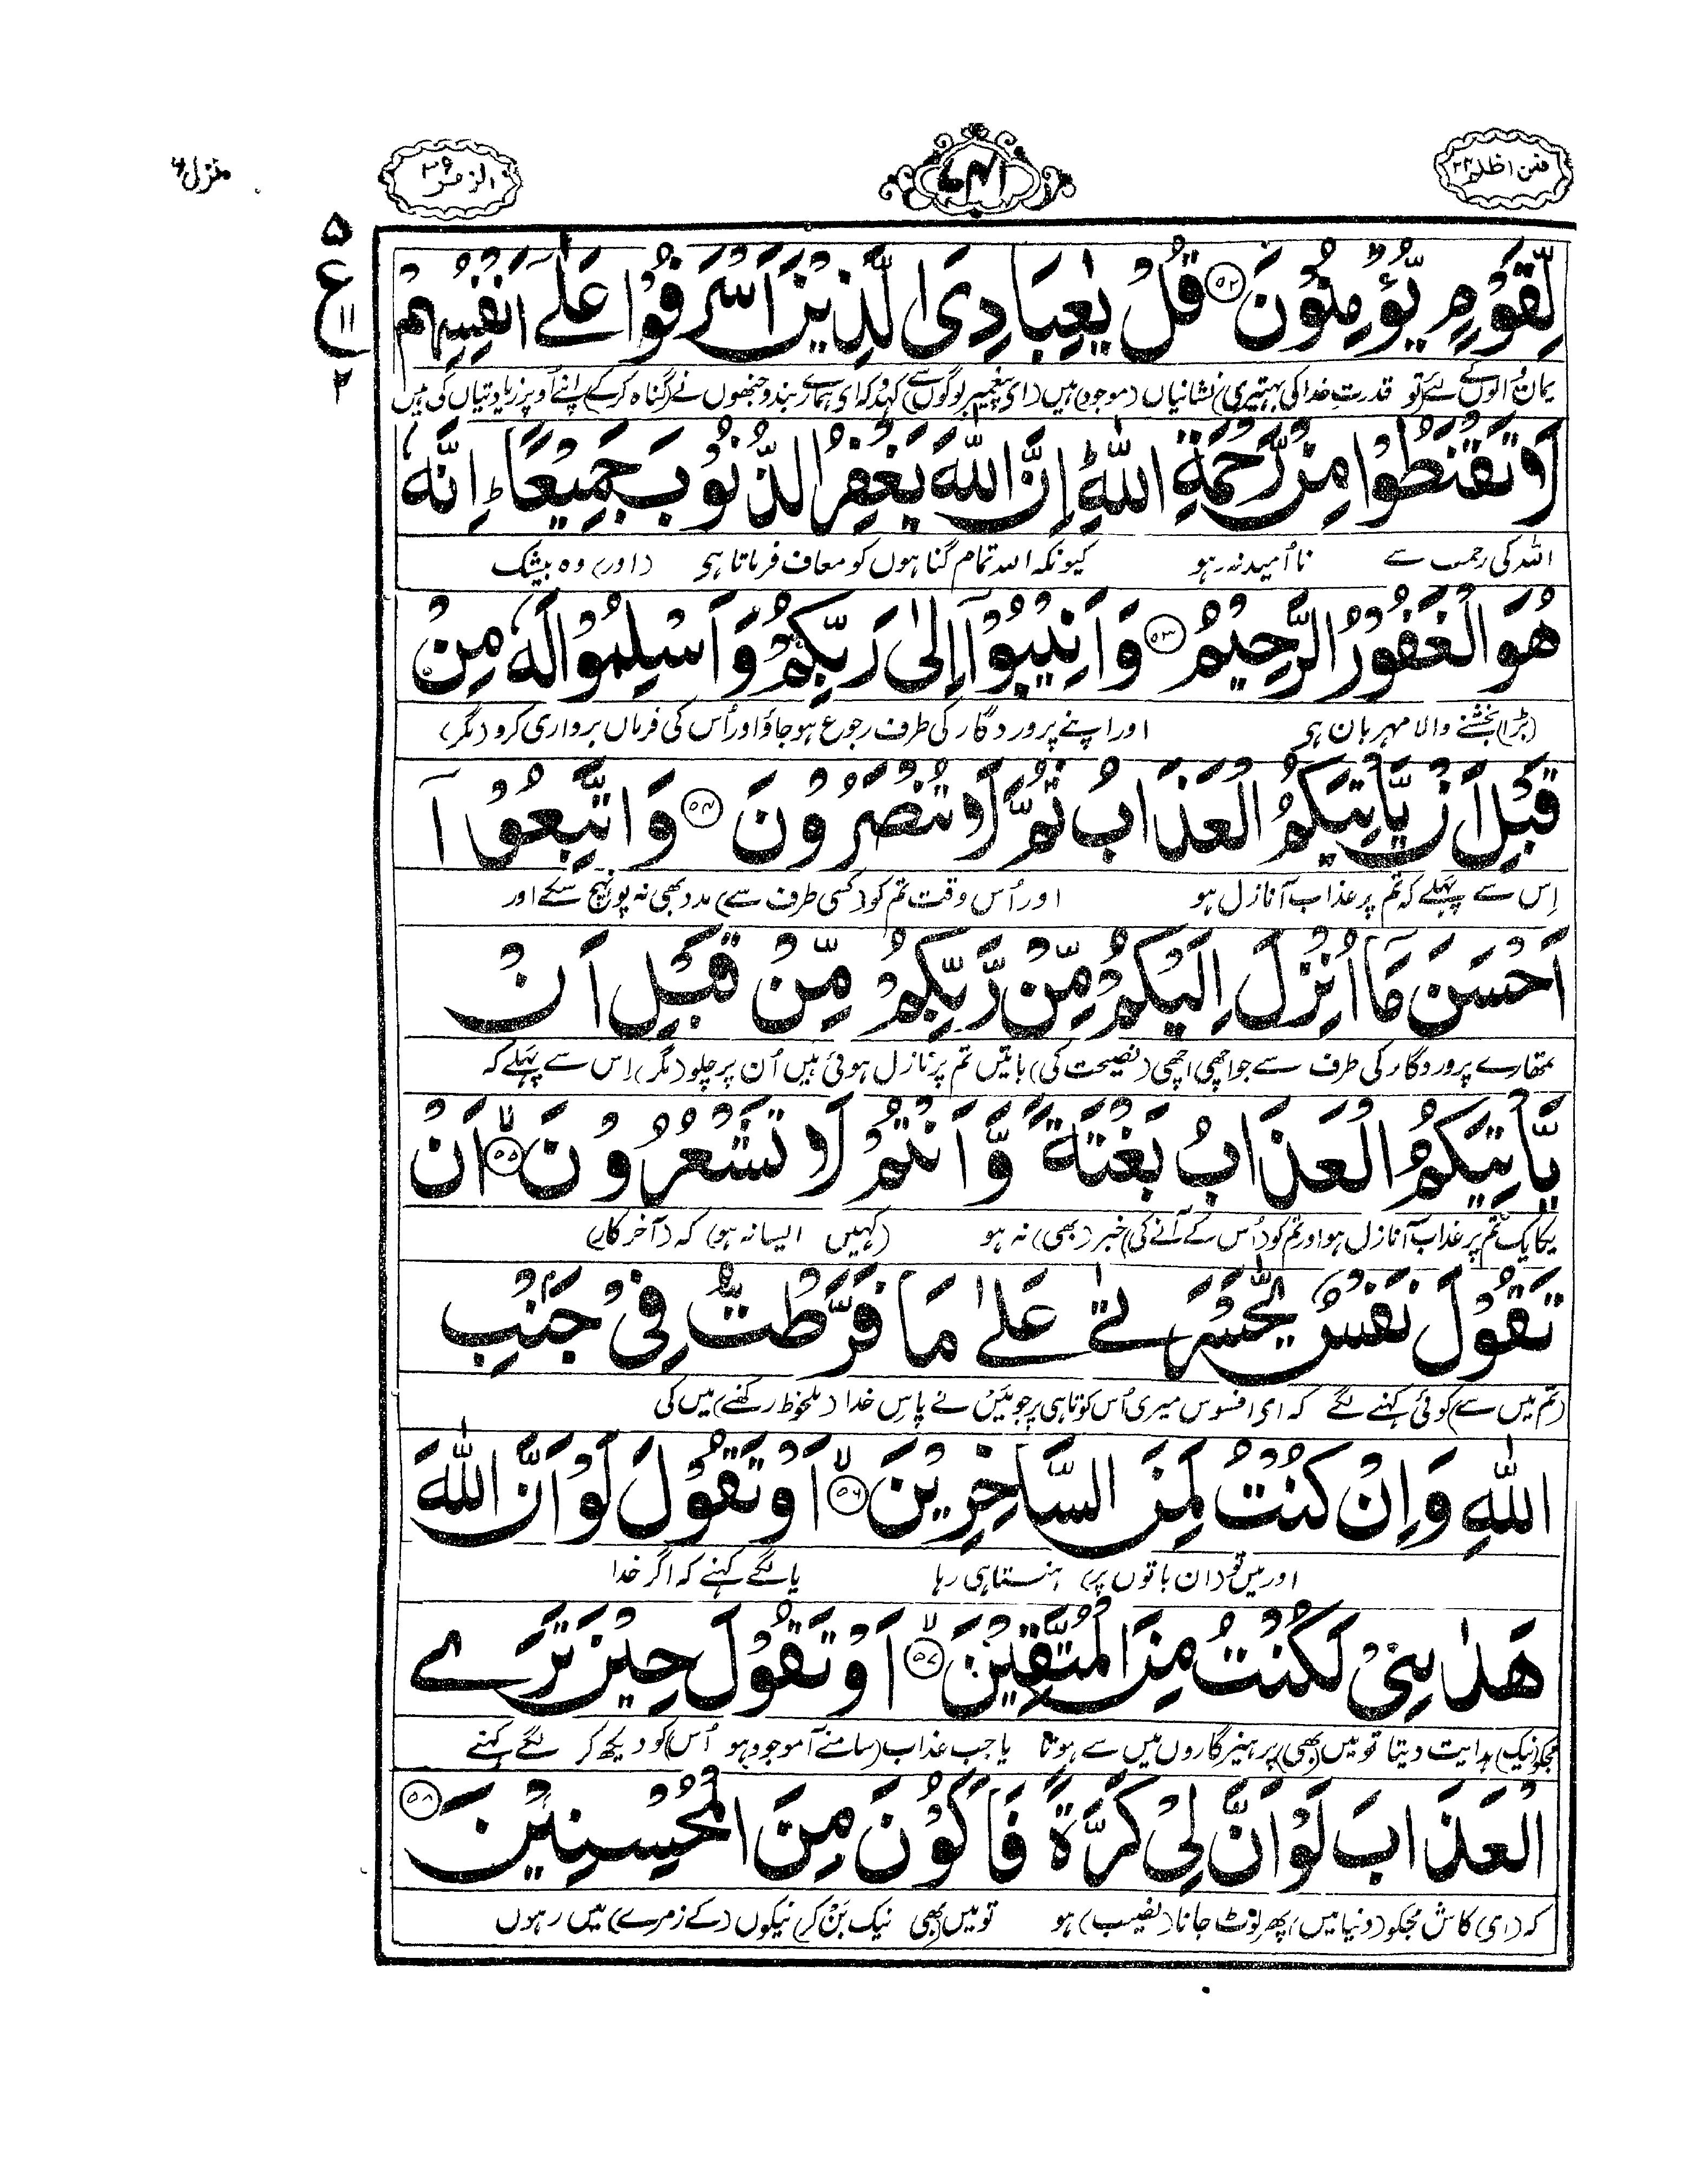 فمن اظلم ۲۴
الزمر ۳۹
منزل ۶
۵
ع
۱۱
۲
لِّقَوْمٍ يُّؤْمِنُوْنَ ﴿۵۲﴾ قُلْ يٰعِبَادِيَ الَّذِيْنَ اَسْرَفُوْا عَلٰٓى اَنْفُسِهِمْ
یمان والوں کے لئے (تو قدرتِ خدا کی بہتیری) نشانیاں (موجود) ہیں (ای پیغمبر لوگوں سے) کہدو کہ ای ہمارے بندو جنھوں نے (گناہ کر کے) اپنے اُوپر زیادتیاں کی ہیں
لَا تَقْنَطُوْا مِنْ رَّحْمَةِ اللّٰهِ ؕ اِنَّ اللّٰهَ يَغْفِرُ الذُّنُوْبَ جَمِيْعًا ؕ اِنَّهٗ
اللہ کی رحمت سے نا اُمید نہ رہو کیونکہ اللہ تمام گناہوں کو معاف فرماتا ہی (اور) وہ بیشک
هُوَ الْغَفُوْرُ الرَّحِيْمُ ﴿۵۳﴾ وَاَنِيْبُوْٓا اِلٰى رَبِّكُمْ وَاَسْلِمُوْا لَهٗ مِنْ
(بڑا) بخشنے والا مہربان ہی اور اپنے پروردگار کی طرف رجوع ہو جاؤ اور اُس کی فرماں برواری کرو (مگر)
قَبْلِ اَنْ يَّاْتِيَكُمُ الْعَذَابُ ثُمَّ لَا تُنْصَرُوْنَ ﴿۵۴﴾ وَاتَّبِعُوْٓا
اِس سے پہلے کہ تم پر عذاب آنازل ہو اور اُس وقت تم کو (کسی طرف سے) مدد بھی نہ پونہچ سکے اور
اَحْسَنَ مَآ اُنْزِلَ اِلَيْكُمْ مِّنْ رَّبِّكُمْ مِّنْ قَبْلِ اَنْ
تمھارے پروردگار کی طرف سے جو اچھی اچھی (نصیحت کی) باتیں تم پر نازل ہوئی ہیں اُن پر چلو (مگر) اِس سے پہلے کہ
يَّاْتِيَكُمُ الْعَذَابُ بَغْتَةً وَّاَنْتُمْ لَا تَشْعُرُوْنَ ۙ﴿۵۵﴾ اَنْ
یکایک تم پر عذاب آنازل ہو اور تم کو (اُس کے آنے کی) خبر (بھی) نہ ہو (کہیں ایسا نہ ہو) کہ (آخر کار)
تَقُوْلَ نَفْسٌ يّٰحَسْرَتٰى عَلٰى مَا فَرَّطْتُّ فِيْ جَنْۢبِ
(تم میں سے) کوئی کہنے لگے کہ ای افسوس میری اُس کوتاہی پر جو مَیں نے پاسِ خدا (ملحوظ رکھنے) میں کی
اللّٰهِ وَاِنْ كُنْتُ لَمِنَ السَّاخِرِيْنَ ۙ﴿۵۶﴾ اَوْ تَقُوْلَ لَوْ اَنَّ اللّٰهَ
اور میں تو (ان باتوں پر) ہنستا ہی رہا یا لگے کہنے کہ اگر خدا
هَدٰىنِيْ لَكُنْتُ مِنَ الْمُتَّقِيْنَ ۙ﴿۵۷﴾ اَوْ تَقُوْلَ حِيْنَ تَرَى
مجکو (نیک) ہدایت دیتا تو میں (بھی) پرہیزگاروں میں سے ہوتا یا جب عذاب (سامنے آموجود ہو اُس) کو دیکھ کر لگے کہنے
الْعَذَابَ لَوْ اَنَّ لِيْ كَرَّةً فَاَكُوْنَ مِنَ الْمُحْسِنِيْنَ ﴿۵۸﴾
کہ (ای) کاش مجکو (دنیا میں) پھر لوٹ جانا (نصیب) ہو تو میں (بھی نیک بَنْ کر) نیکوں (کے زمرے) میں رہوں